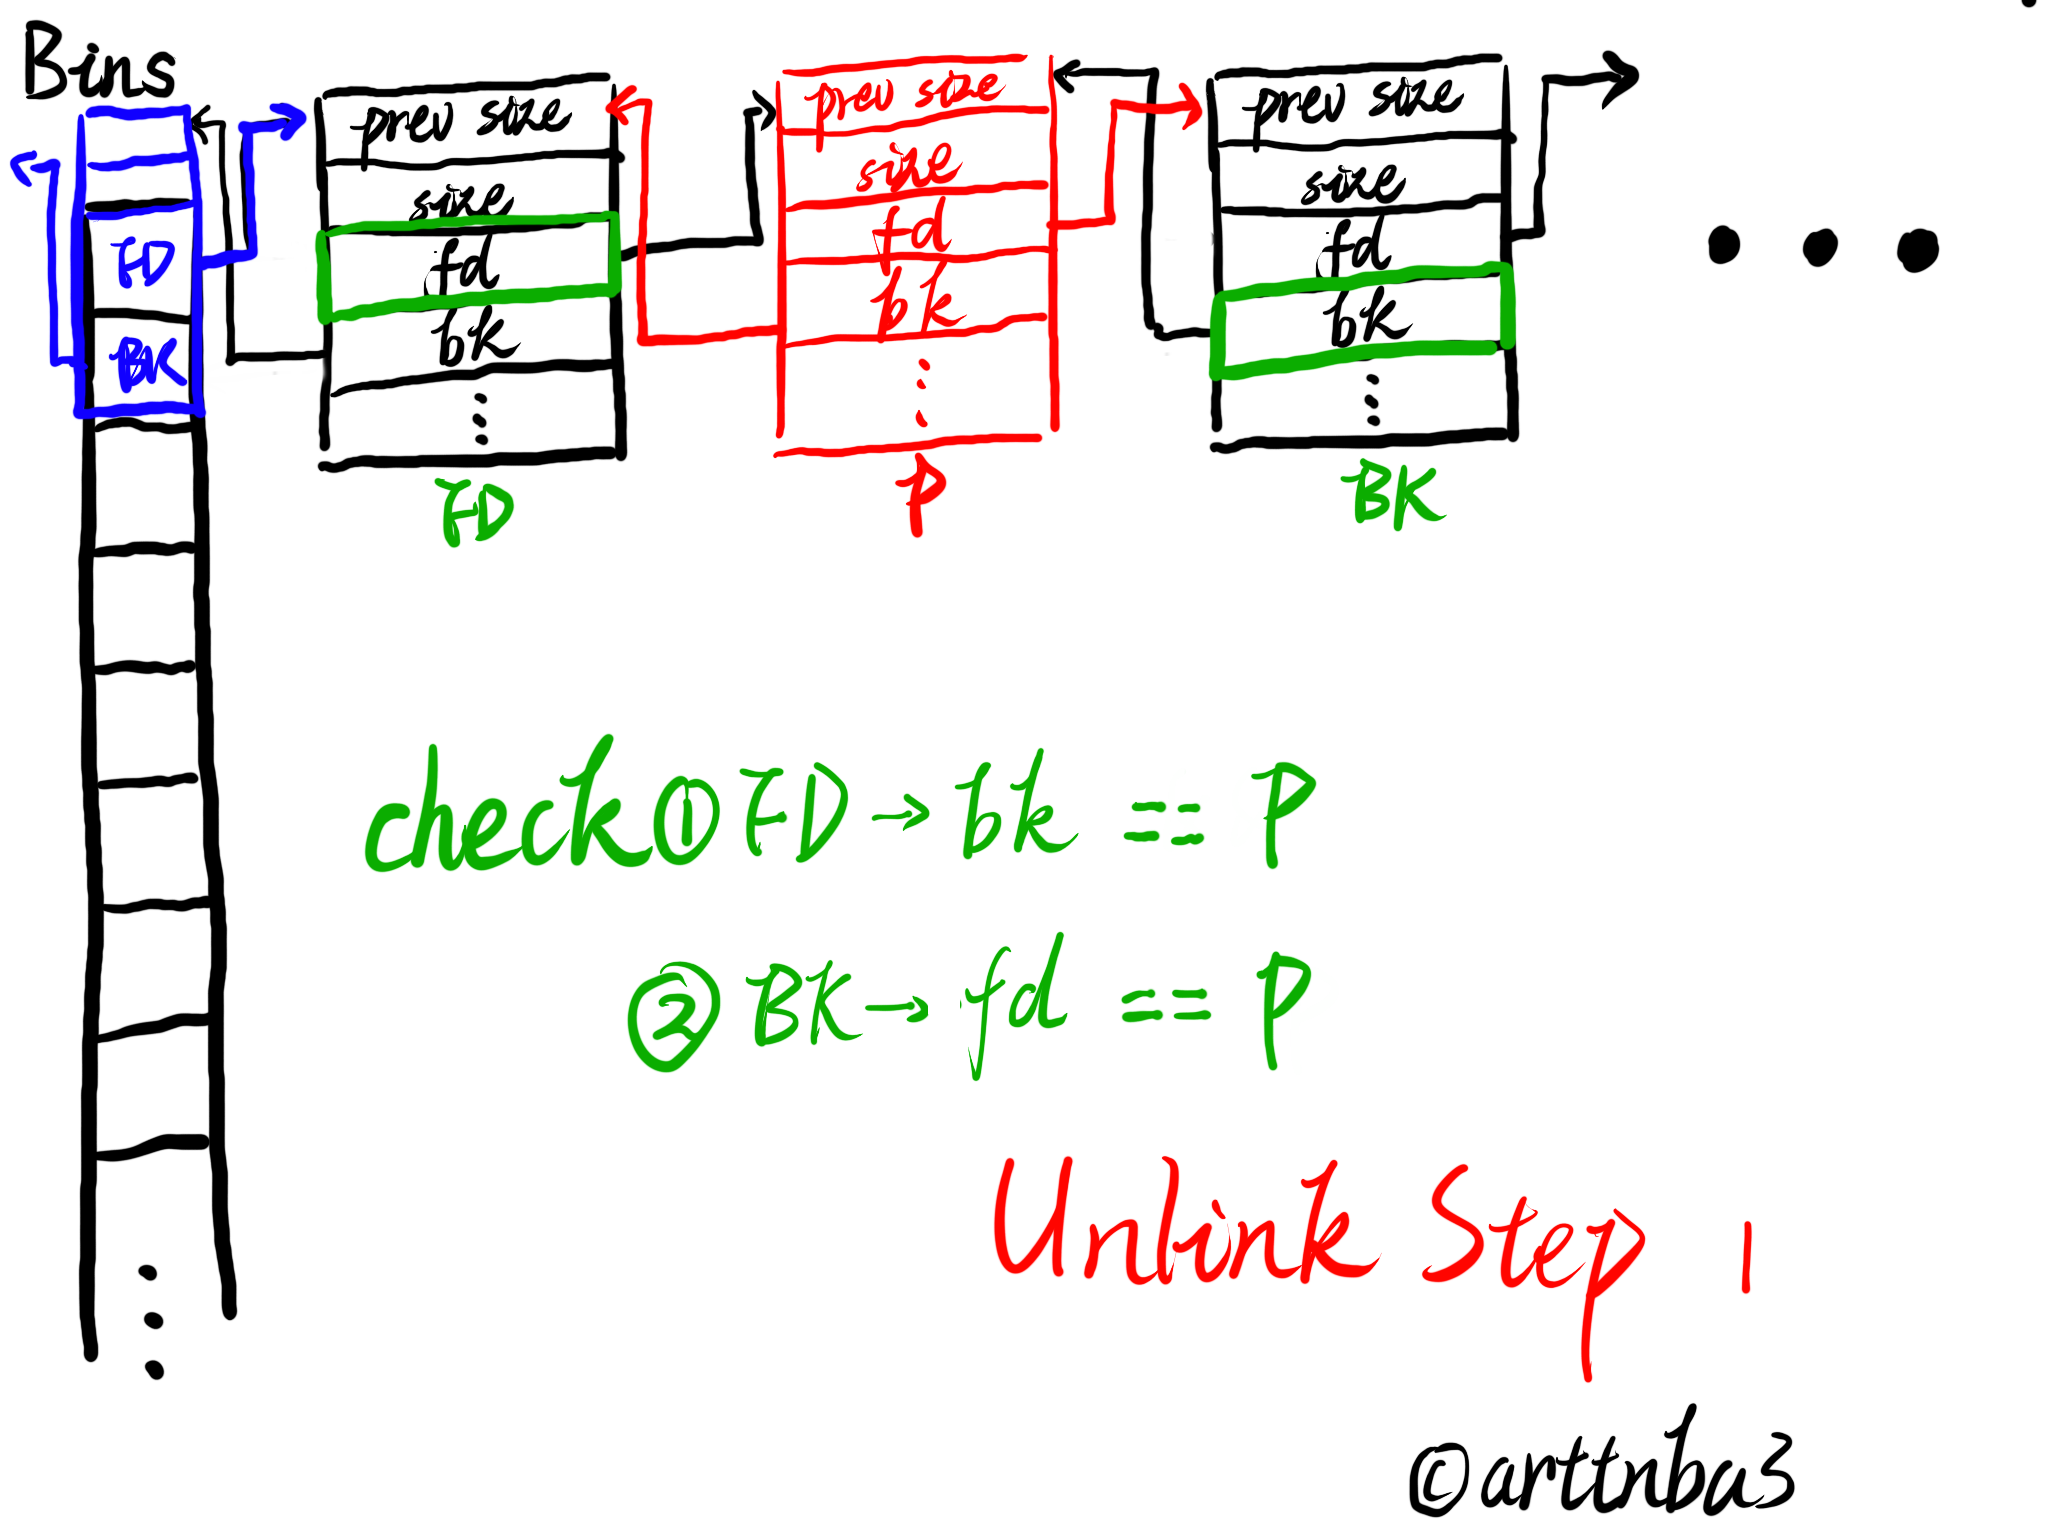 Bins
prev size
size
fd
bk
FD
prev size
size
fd
bk
P
prev size
size
fd
bk
BK
FD
BK
check① FD→bk == P
② BK→fd == P
Unlink Step 1
©arttnba3